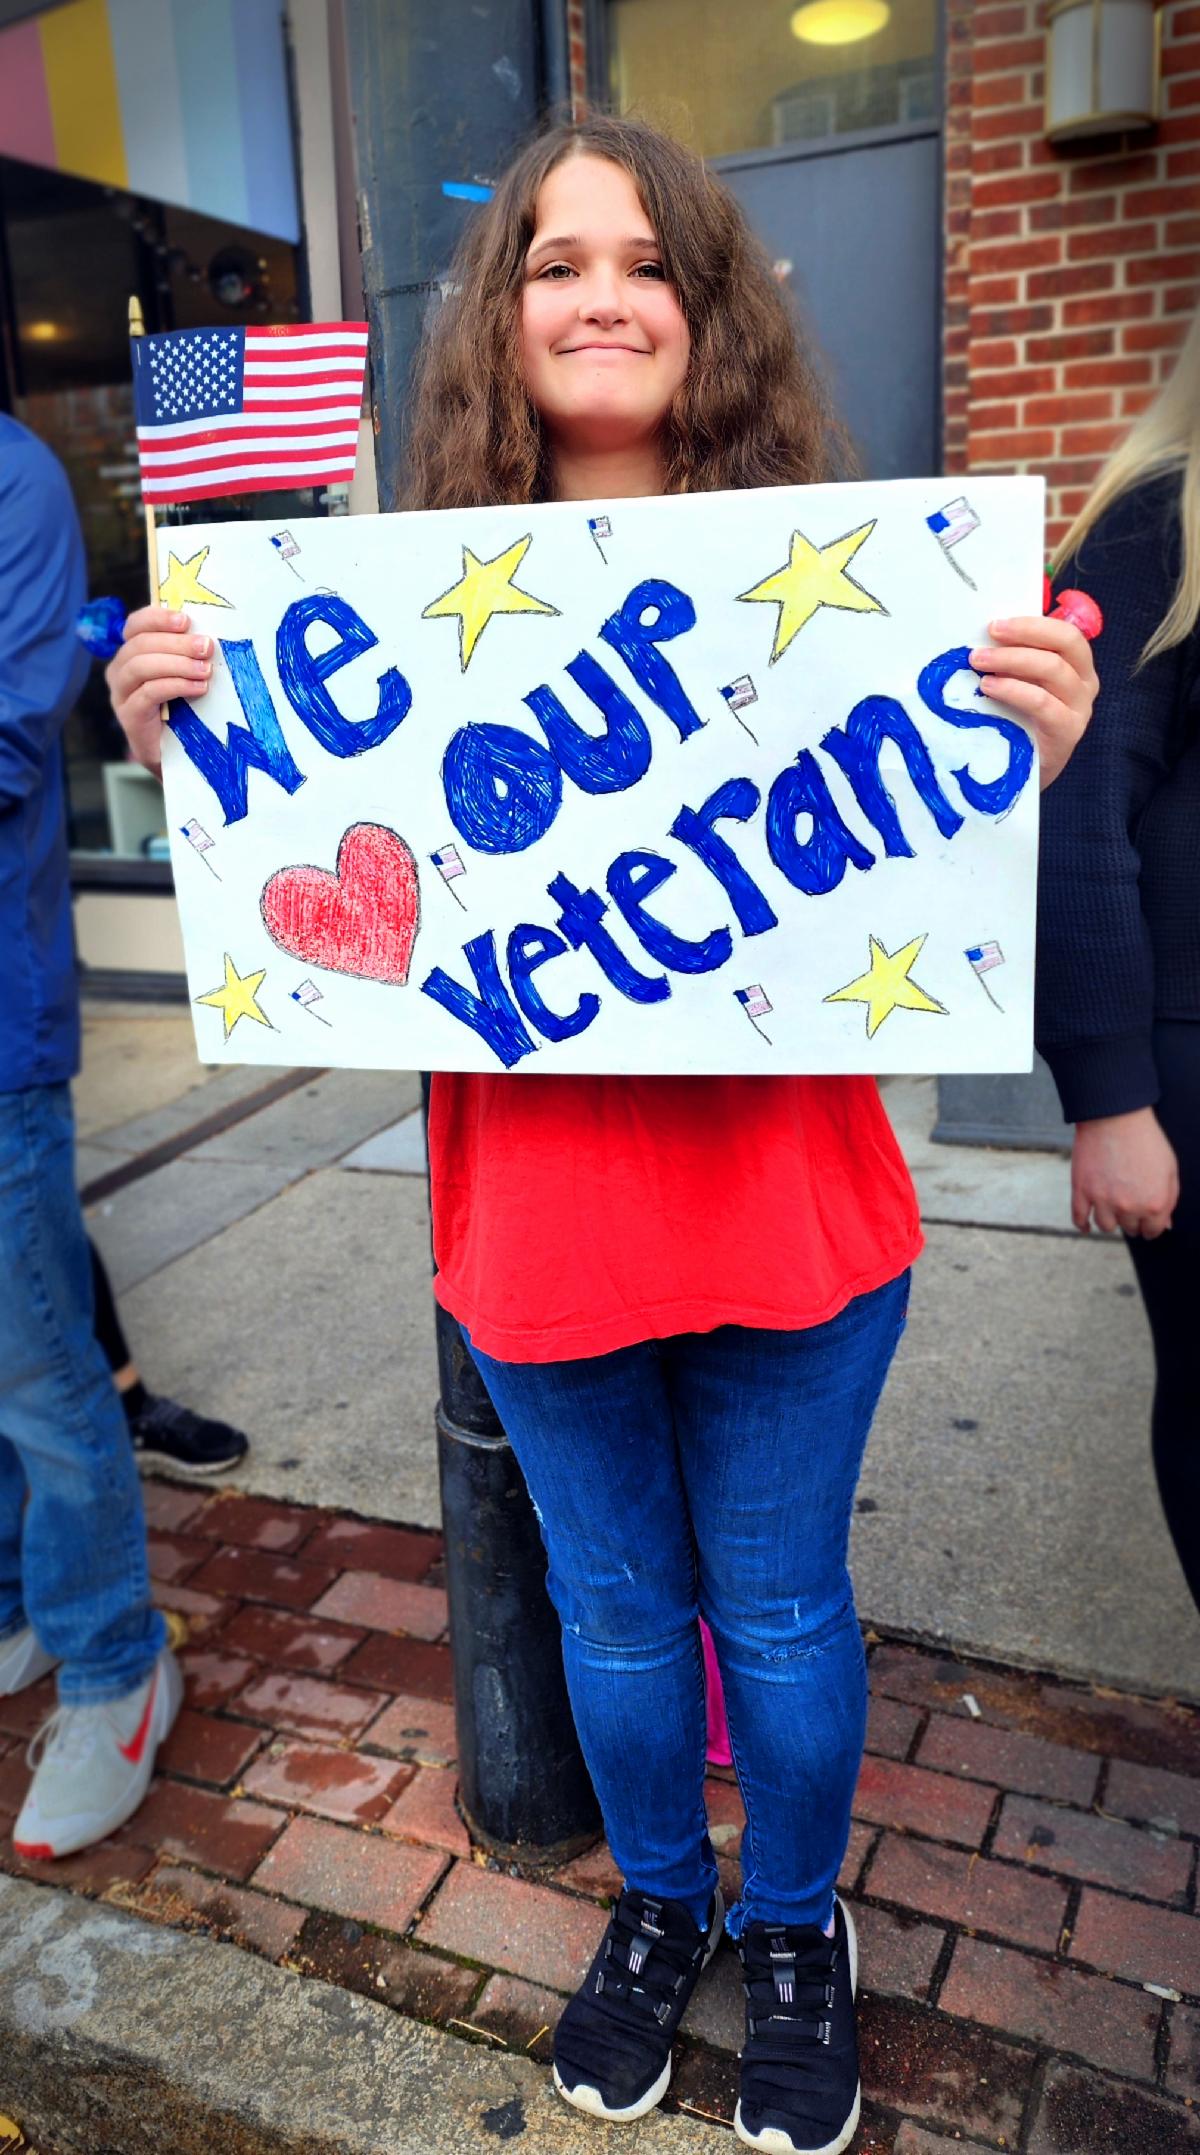 We
❤ our
veterans